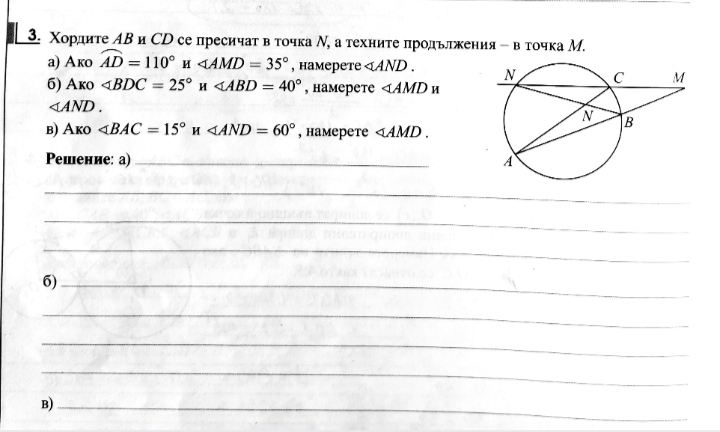 3. Хордите AB и CD се пресичат в точка N, а техните продължения – в точка M.
а) Ако AD = 110° и ∢AMD = 35°, намерете ∢AND.
б) Ако ∢BDC = 25° и ∢ABD = 40°, намерете ∢AMD и
∢AND.
в) Ако ∢BAC = 15° и ∢AND = 60°, намерете ∢AMD.
Решение: а)
б)
в)
N
C
M
N
B
A